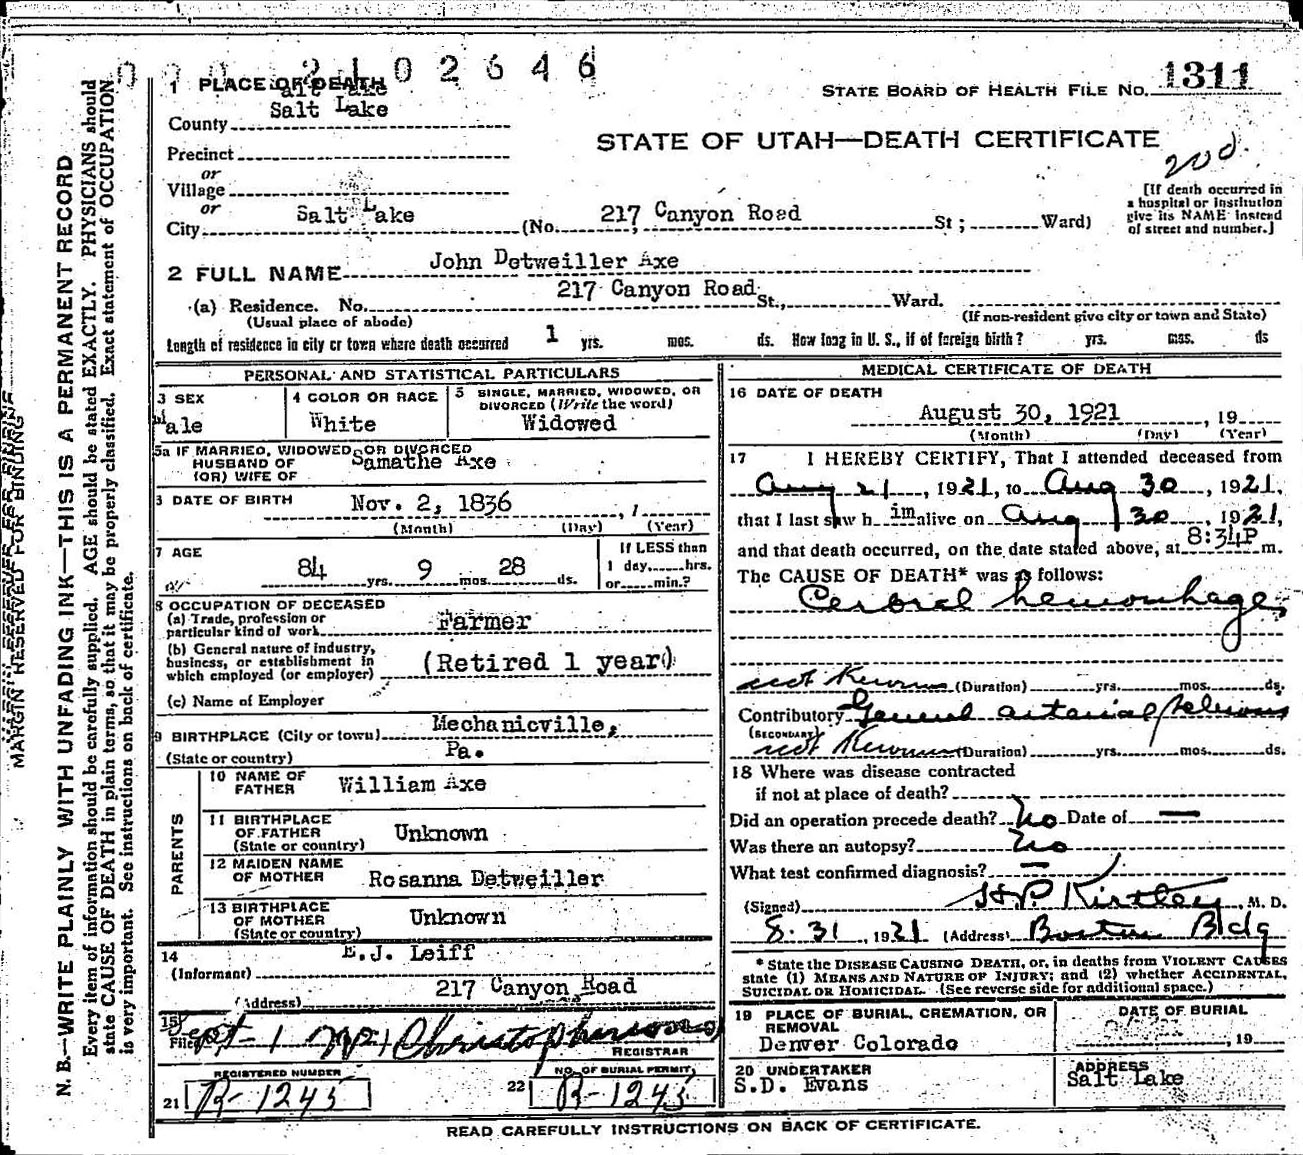 2102646
1 PLACE OF DEATH
STATE BOARD OF HEALTH FILE NO. 1311
Salt Lake
County
STATE OF UTAH—DEATH CERTIFICATE
200.
Precinct
or
Village
or
City Salt Lake (No. 217 Canyon Road St; Ward)
[If death occurred in
a hospital or institution
give its NAME instead
of street and number.]
2 FULL NAME John Detweiller Axe
(a) Residence. No. 217 Canyon Road St., Ward.
(Usual place of abode) (If non-resident give city or town and State)
Length of residence in city or town where death occurred 1 yrs. mos. ds. How long in U. S., if of foreign birth? yrs. mos. ds
PERSONAL AND STATISTICAL PARTICULARS
3 SEX
Male
4 COLOR OR RACE
White
5 SINGLE, MARRIED, WIDOWED, OR
DIVORCED (Write the word)
Widowed
5a IF MARRIED, WIDOWED, OR DIVORCED
HUSBAND OF Samathe Axe
(OR) WIFE OF
6 DATE OF BIRTH Nov. 2, 1836
(Month) (Day) (Year)
7 AGE
84 yrs. 9 mos. 28 ds.
If LESS than
1 day, hrs.
or min.?
8 OCCUPATION OF DECEASED
(a) Trade, profession or
particular kind of work Farmer
(b) General nature of industry,
business, or establishment in
which employed (or employer) (Retired 1 year)
(c) Name of Employer
9 BIRTHPLACE (City or town) Mechanicville,
(State or country) Pa.
PARENTS
10 NAME OF
FATHER William Axe
11 BIRTHPLACE
OF FATHER Unknown
(State or country)
12 MAIDEN NAME
OF MOTHER Rosanna Detweiller
13 BIRTHPLACE
OF MOTHER Unknown
(State or country)
14
(Informant) E.J. Leiff
(Address) 217 Canyon Road
15
Filed Sept 1
REGISTRAR
REGISTERED NUMBER
21 R-1245
NO. OF BURIAL PERMIT
22 R-1245
MEDICAL CERTIFICATE OF DEATH
16 DATE OF DEATH
August 30, 1921, 19
(Month) (Day) (Year)
17 I HEREBY CERTIFY, That I attended deceased from
Aug 21, 1921, to Aug 30, 1921,
that I last saw him alive on Aug 30, 1921,
and that death occurred, on the date stated above, at 8:34P m.
The CAUSE OF DEATH* was as follows:
Cerbral hemorrhage,
not Known (Duration) yrs. mos. ds.
Contributory General arterial sclerosis
(SECONDARY)
not Known (Duration) yrs. mos. ds.
18 Where was disease contracted
if not at place of death?
Did an operation precede death? No Date of —
Was there an autopsy? No
What test confirmed diagnosis? —
(Signed) H.P. Kirtley, M. D.
8-31, 1921 (Address) Boston Bldg
* State the DISEASE CAUSING DEATH, or, in deaths from VIOLENT CAUSES
state (1) MEANS AND NATURE OF INJURY; and (2) whether ACCIDENTAL,
SUICIDAL OR HOMICIDAL. (See reverse side for additional space.)
19 PLACE OF BURIAL, CREMATION, OR
REMOVAL
Denver Colorado
DATE OF BURIAL
, 19
20 UNDERTAKER
S.D. Evans
ADDRESS
Salt Lake
READ CAREFULLY INSTRUCTIONS ON BACK OF CERTIFICATE.
MARGIN RESERVED FOR BINDING
N. B.—WRITE PLAINLY WITH UNFADING INK—THIS IS A PERMANENT RECORD
Every item of information should be carefully supplied. AGE should be stated EXACTLY. PHYSICIANS should
state CAUSE OF DEATH in plain terms, so that it may be properly classified. Exact statement of OCCUPATION
is very important. See instructions on back of certificate.